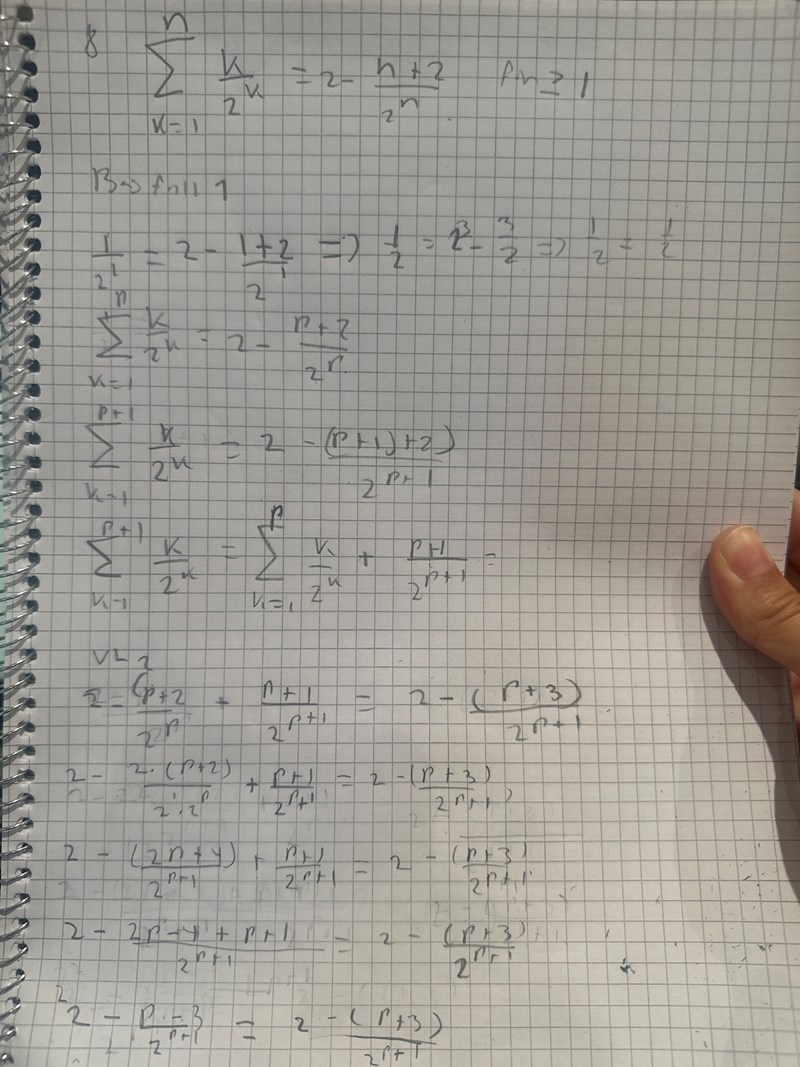 8 ∑_{k=1}^{n} k/2^k = 2 - (n+2)/2^n n ≥ 1
1
1/2^1 = 2 - (1+2)/2^1 => 1/2 = - 3/2 => 1/2 = 1/2
∑_{k=1}^{p} k/2^k = 2 - (p+2)/2^p
∑_{k=1}^{p+1} k/2^k = 2 - ((p+1)+2)/2^{p+1}
∑_{k=1}^{p+1} k/2^k = ∑_{k=1}^{p} k/2^k + (p+1)/2^{p+1} =
VL
2 - (p+2)/2^p + (p+1)/2^{p+1} = 2 - (p+3)/2^{p+1}
2 - 2·(p+2)/(2^1·2^p) + (p+1)/2^{p+1} = 2 - (p+3)/2^{p+1}
2 - (2p+4)/2^{p+1} + (p+1)/2^{p+1} = 2 - (p+3)/2^{p+1}
2 - (2p-4+p+1)/2^{p+1} = 2 - (p+3)/2^{p+1}
2 - (p-3)/2^{p+1} = 2 - (p+3)/2^{p+1}